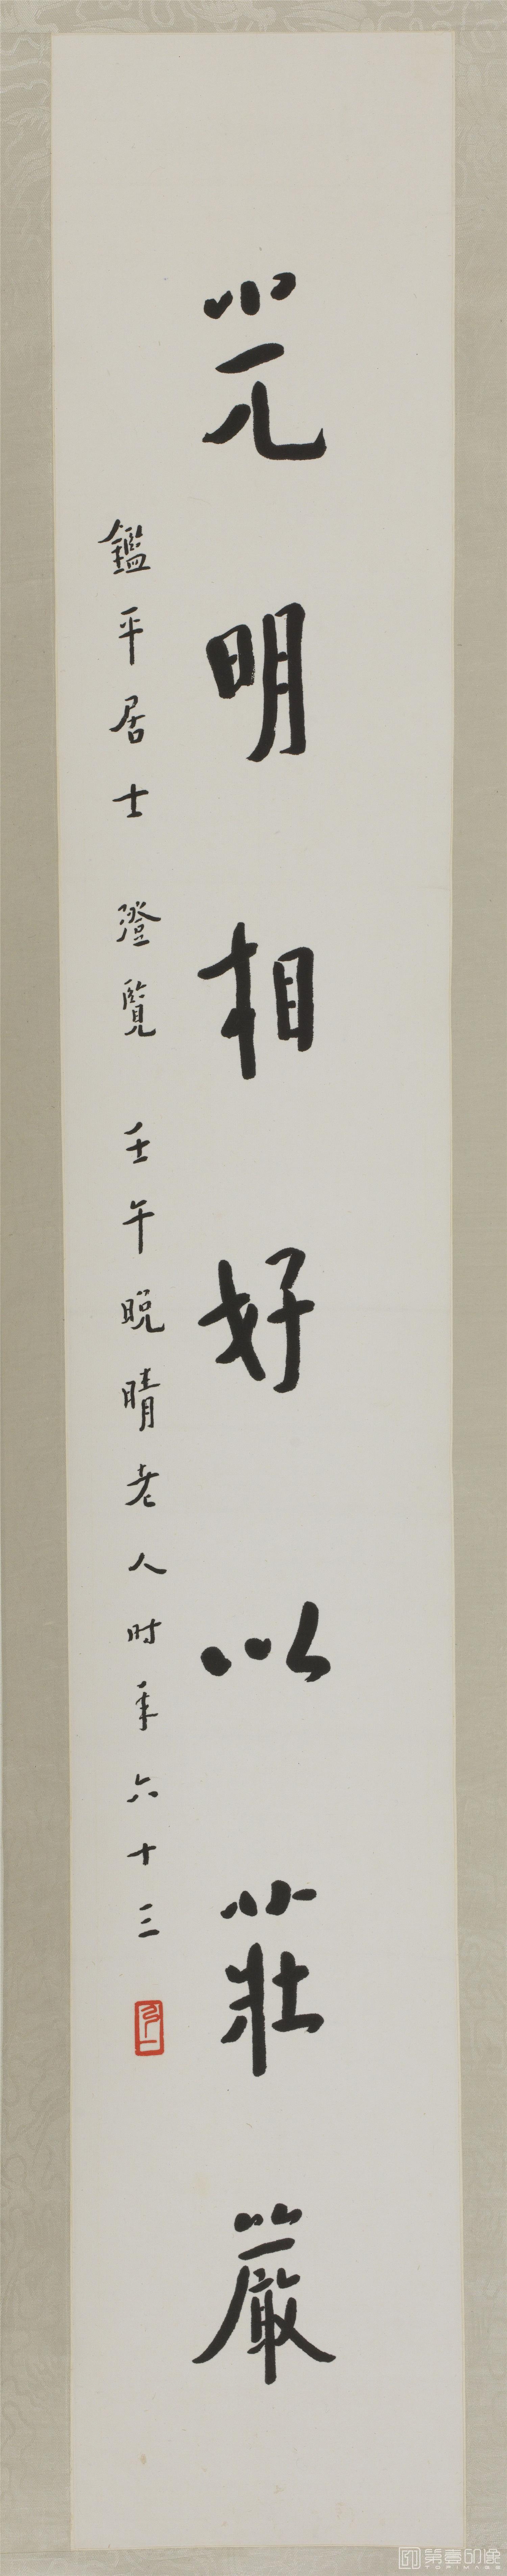 光明相好以莊嚴
鑑平居士 澄覽 壬午晚晴老人时年六十三
弘一
第壹印像
TOPIMAGE